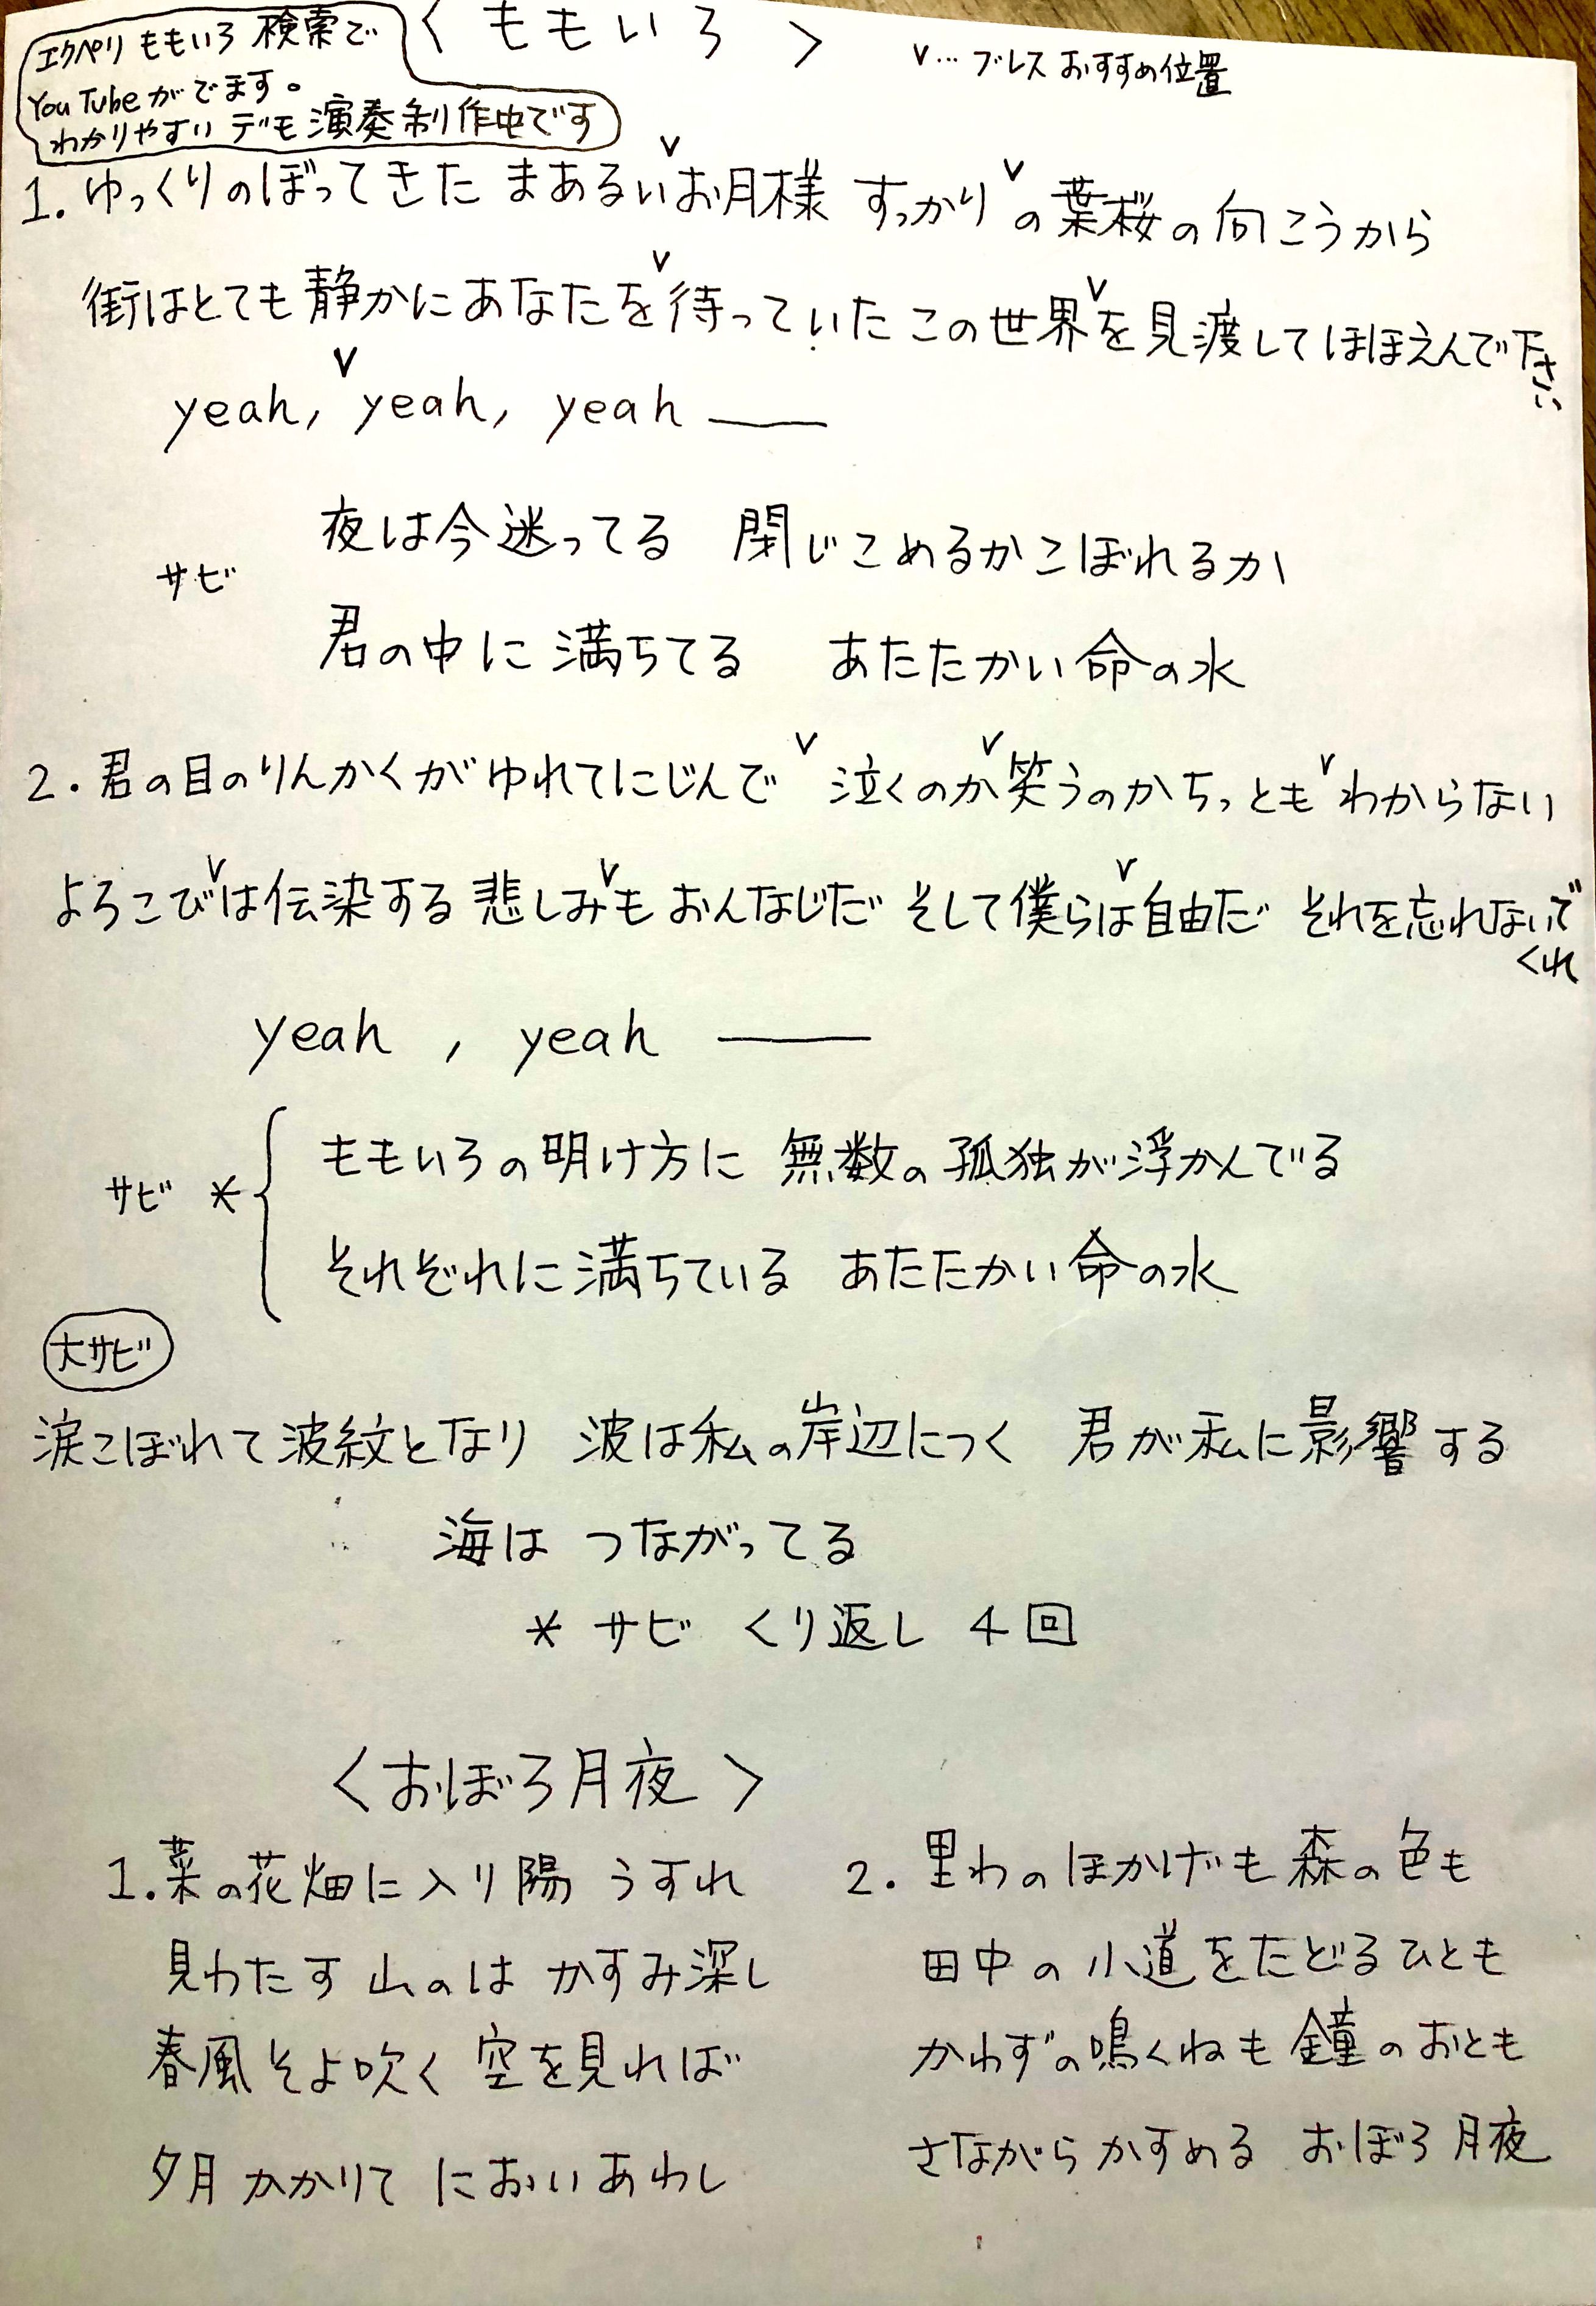 エクペリ ももいろ 検索で
YouTubeがでます。
わかりやすい デモ演奏制作中です
〈ももいろ〉
v…ブレスおすすめ位置
1. ゆっくりのぼってきた まあるいvお月様 すっかりvの葉桜の向こうから
街はとても静かにあなたをv待っていた この世界vを見渡してほほえんで下さい
yeah, v yeah, yeah ——
サビ
夜は今迷ってる 閉じこめるかこぼれるか
君の中に満ちてる あたたかい命の水
2. 君の目のりんかくがゆれてにじんでv 泣くのかv笑うのかちっともvわからない
よろこびvは伝染する 悲しみvも おんなじだ そして僕らvは自由だ それを忘れないでくれ
yeah , yeah ——
サビ *
ももいろの明け方に 無数の孤独が浮かんでる
それぞれに満ちている あたたかい命の水
大サビ
涙こぼれて波紋となり 波は私の岸辺につく 君が私に影響する
海は つながってる
* サビ くり返し 4回
〈おぼろ月夜〉
1. 菜の花畑に入り陽 うすれ
見わたす山のは かすみ深し
春風そよ吹く 空を見れば
夕月かかりて においあわし
2. 里わのほかげも森の色も
田中の小道をたどるひとも
かわずの鳴くねも鐘のおとも
さながらかすめる おぼろ月夜